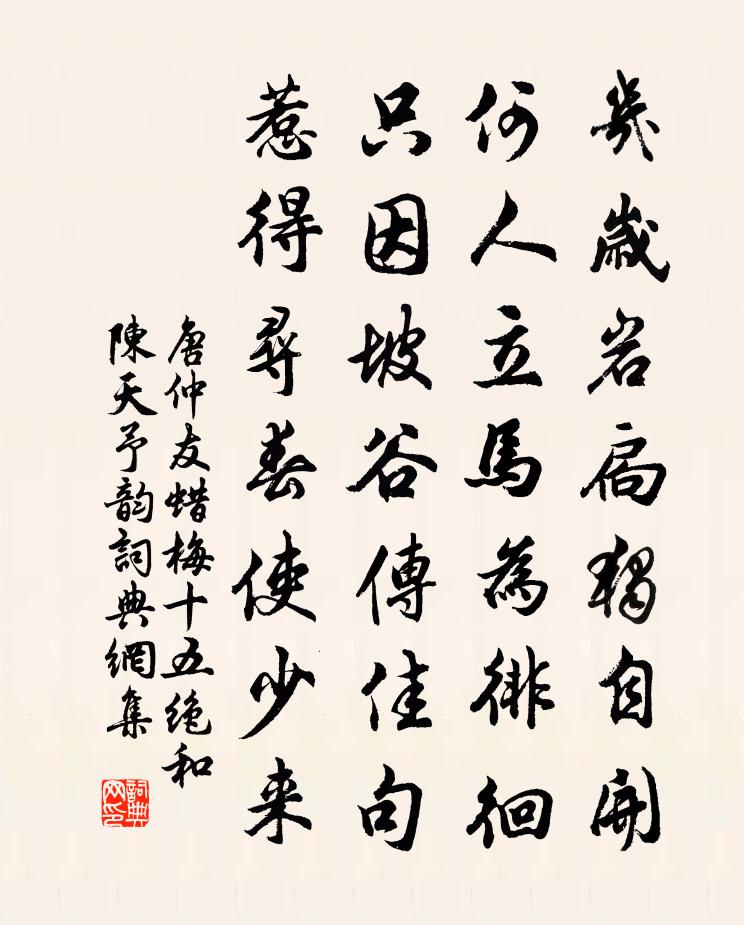 幾歲岩扃獨自開
何人立馬為徘徊
只因坡谷傳佳句
惹得尋春使少来
唐仲友蜡梅十五絶和
陳天予韵詞典網集
詞典网印